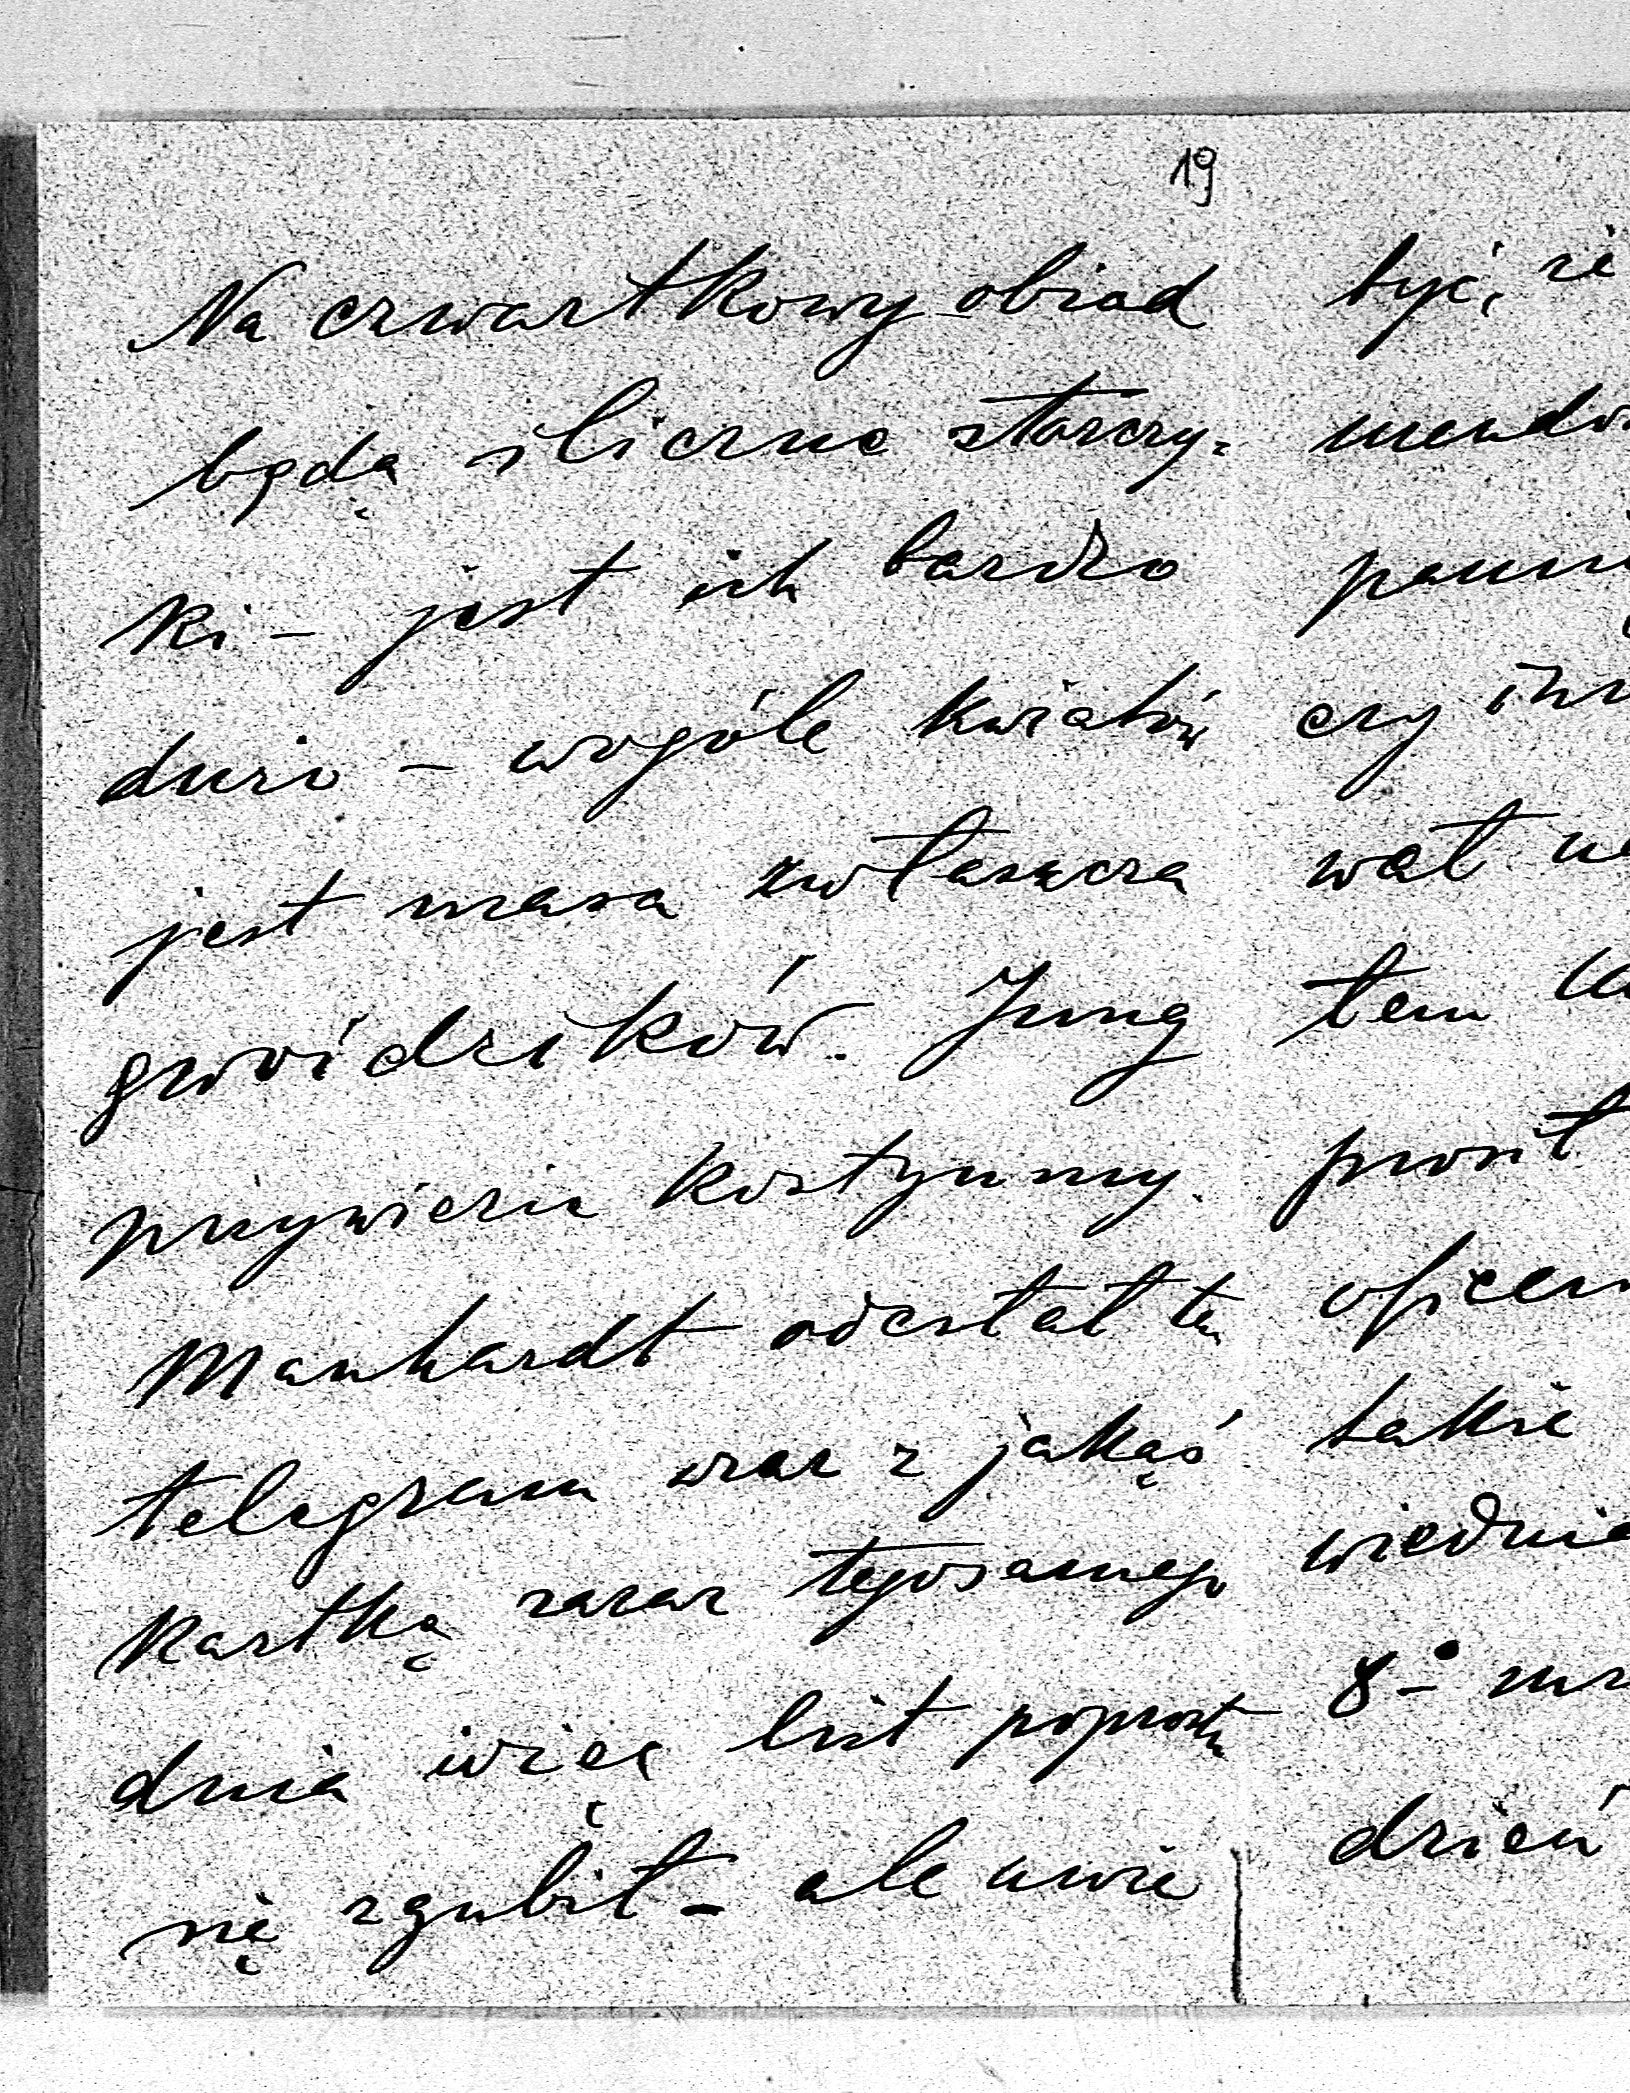 19
Na czwartkowy obiad
będą śliczne storczy-
ki – jest ich bardzo
dużo – wogóle kwiatów
jest masa zwłaszcza
gwoździków. Jung
przywiezie kostyumy.
Manhardt odesłał ten
telegram wraz z jakąś
kartką zaraz tegosamego
dnia więc list poprostu
się zgubił – ale umie
być, że
pani
czy
wał
tem
prosił
oficer
także
wiednie
8-
dzień